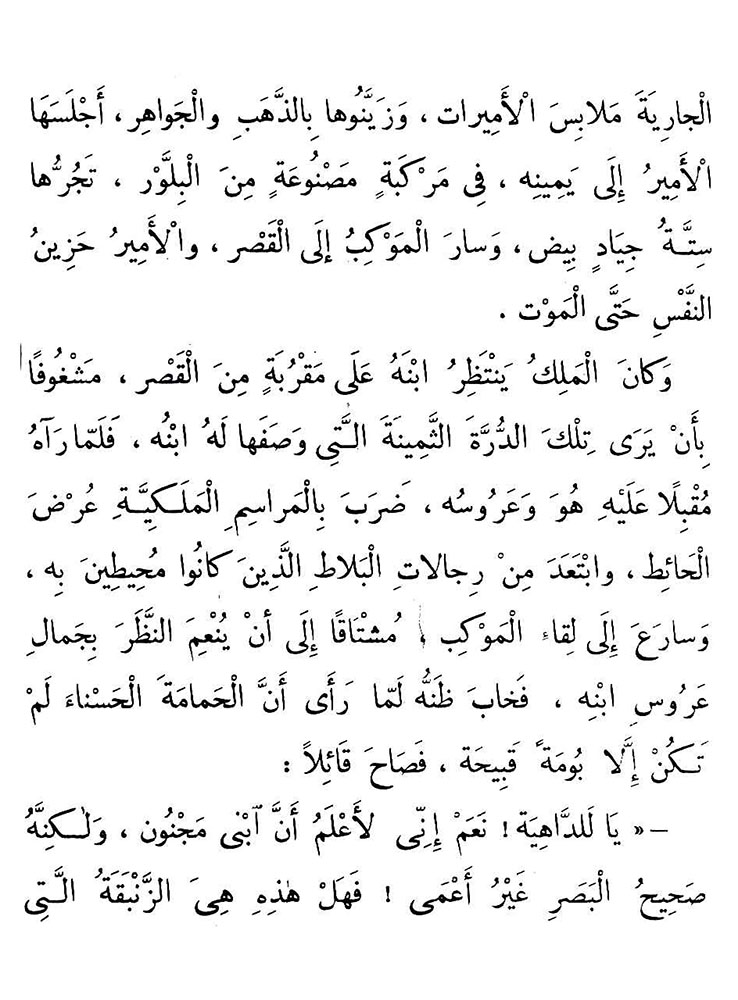 الْجارِيَةَ مَلابِسَ الْأَمِيرات ، وَزَيَّنُوها بِالذَّهَبِ والْجَواهِر ، أَجْلَسَهَا
الْأَمِيرُ إِلَى يَمِينِه ، فِى مَرْكَبَةٍ مَصْنُوعَةٍ مِنَ الْبِلَّوْر ، تَجُرُّها
سِتَّةُ جِيَادٍ بِيض ، وَسارَ الْمَوْكِبُ إلَى الْقَصْر ، والْأَمِيرُ حَزِينُ
النَّفْسِ حَتَّى الْمَوْت .
وَكانَ الْمَلِكُ يَنْتَظِرُ ابْنَهُ عَلَى مَقْرُبَةٍ مِنَ الْقَصْر ، مَشْغُوفًا
بِأَنْ يَرَى تِلْكَ الدُّرَّةَ الثَّمِينَةَ الَّتِى وَصَفَها لَهُ ابْنُه ، فَلَمّا رَآهُ
مُقْبِلًا عَلَيْهِ هُوَ وَعَرُوسُه ، ضَرَبَ بِالْمَراسِمِ الْمَلَكِيَّةِ عُرْضَ
الْحَائِط ، وابْتَعَدَ مِنْ رِجالاتِ الْبَلاطِ الَّذِينَ كانُوا مُحِيطِينَ بِه ،
وَسارَعَ إِلَى لِقاءِ الْمَوْكِب ، مُشْتَاقًا إِلَى أنْ يُنْعِمَ النَّظَرَ بِجَمالِ
عَرُوسِ ابْنِه ، فَخابَ ظَنُّه لَمّا رَأَى أَنَّ الْحَمامَةَ الْحَسْناءَ لَمْ
تَكُنْ إِلَّا بُومَةً قَبِيحَة ، فَصَاحَ قَائِلاً :
–« يَا لَلدَّاهِيَة ! نَعَمْ إِنِّى لأَعْلَمُ أَنَّ ٱبْنِى مَجْنُون ، وَلٰكِنَّهُ
صَحِيحُ الْبَصَرِ غَيْرُ أَعْمَى ! فَهَلْ هٰذِهِ هِىَ الزَّنْبَقَةُ الَّتِى